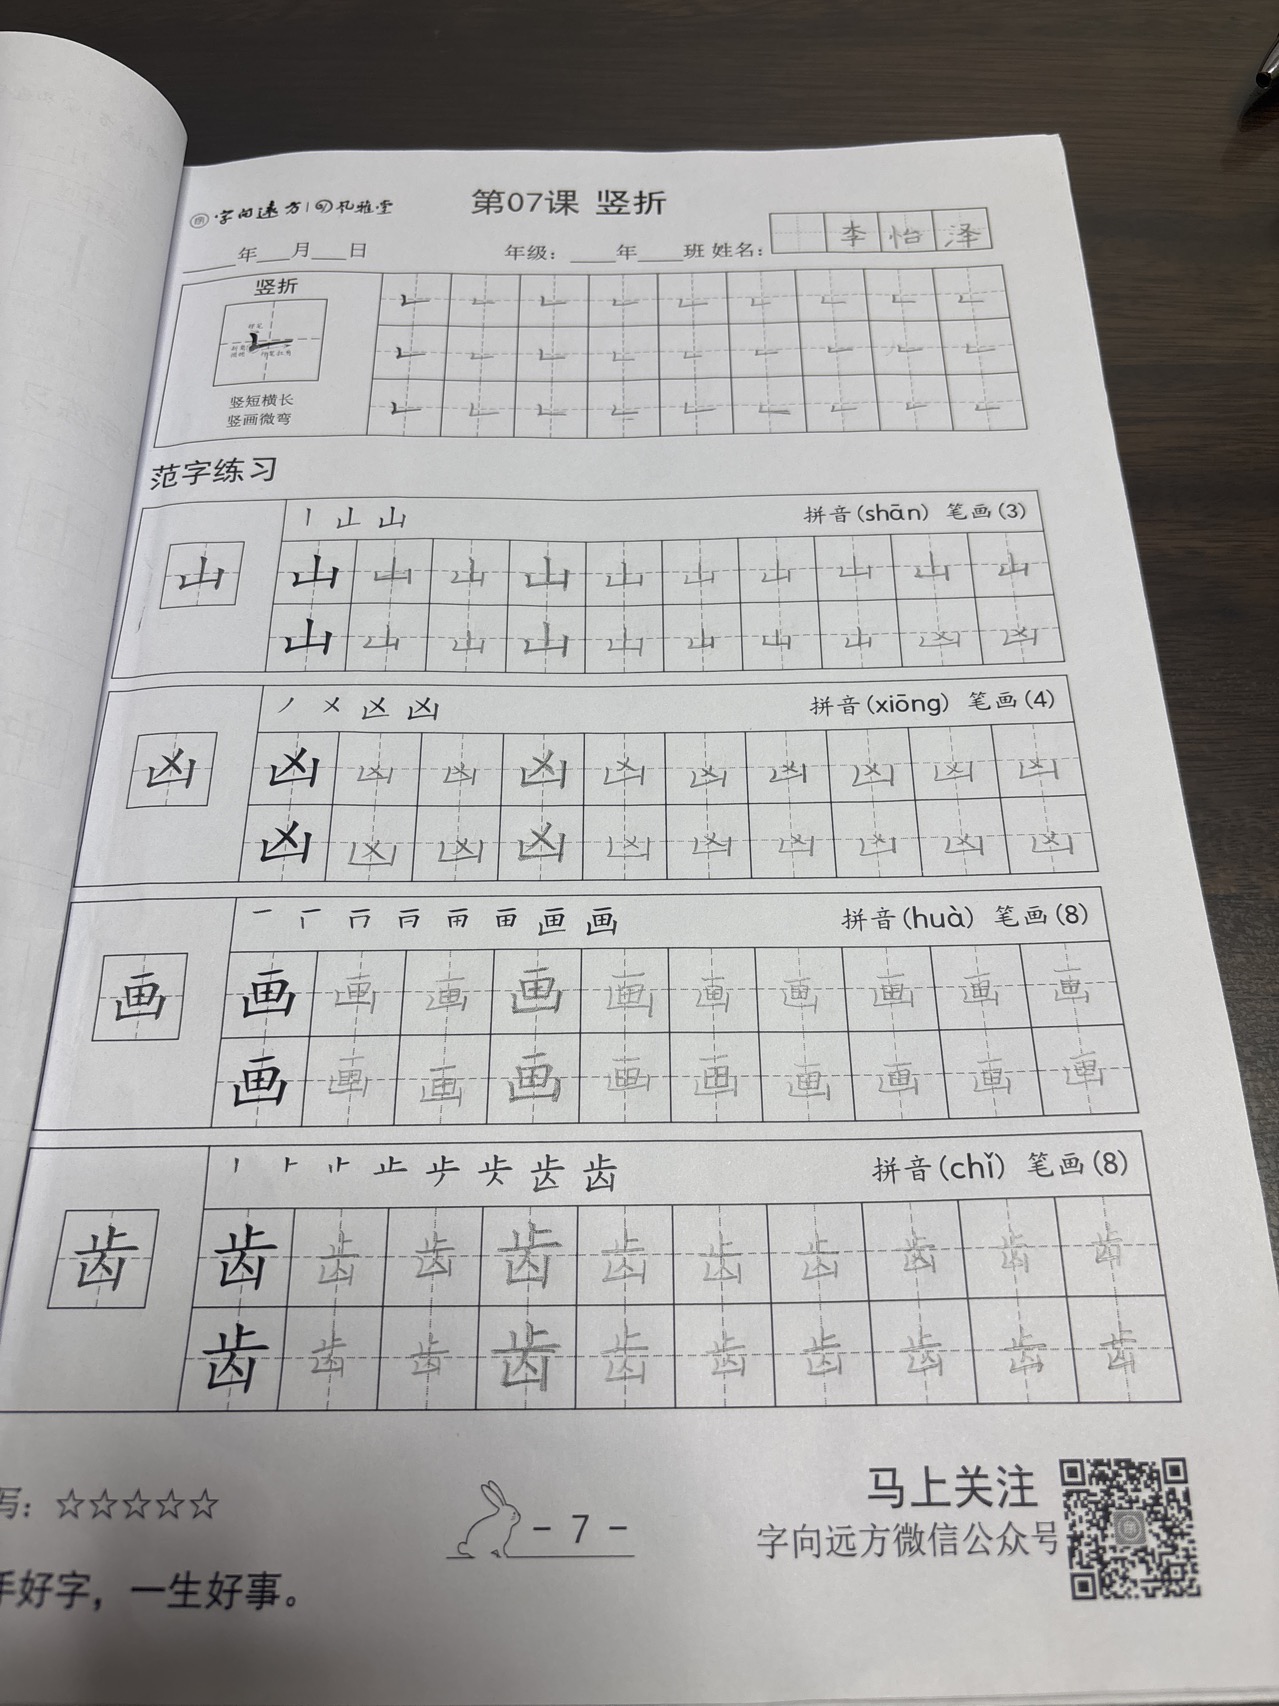 字向远方 札雅堂
第07课 竖折
年 月 日 年级： 年 班 姓名： 李怡泽
竖折
竖短横长
竖画微弯
范字练习
拼音(shān) 笔画(3)
山 山 山 山 山 山 山 山 山 山 山
山 山 山 山 山 山 山 山 凶 凶
拼音(xiōng) 笔画(4)
凶 凶 凶 凶 凶 凶 凶 凶 凶 凶 凶
凶 凶 凶 凶 凶 凶 凶 凶 凶 凶
拼音(huà) 笔画(8)
画 画 画 画 画 画 画 画 画 画 画
画 画 画 画 画 画 画 画 画 画
拼音(chǐ) 笔画(8)
齿 齿 齿 齿 齿 齿 齿 齿 齿 齿 齿
齿 齿 齿 齿 齿 齿 齿 齿 齿 齿
写：☆☆☆☆☆
- 7 -
马上关注
字向远方微信公众号
手好字，一生好事。